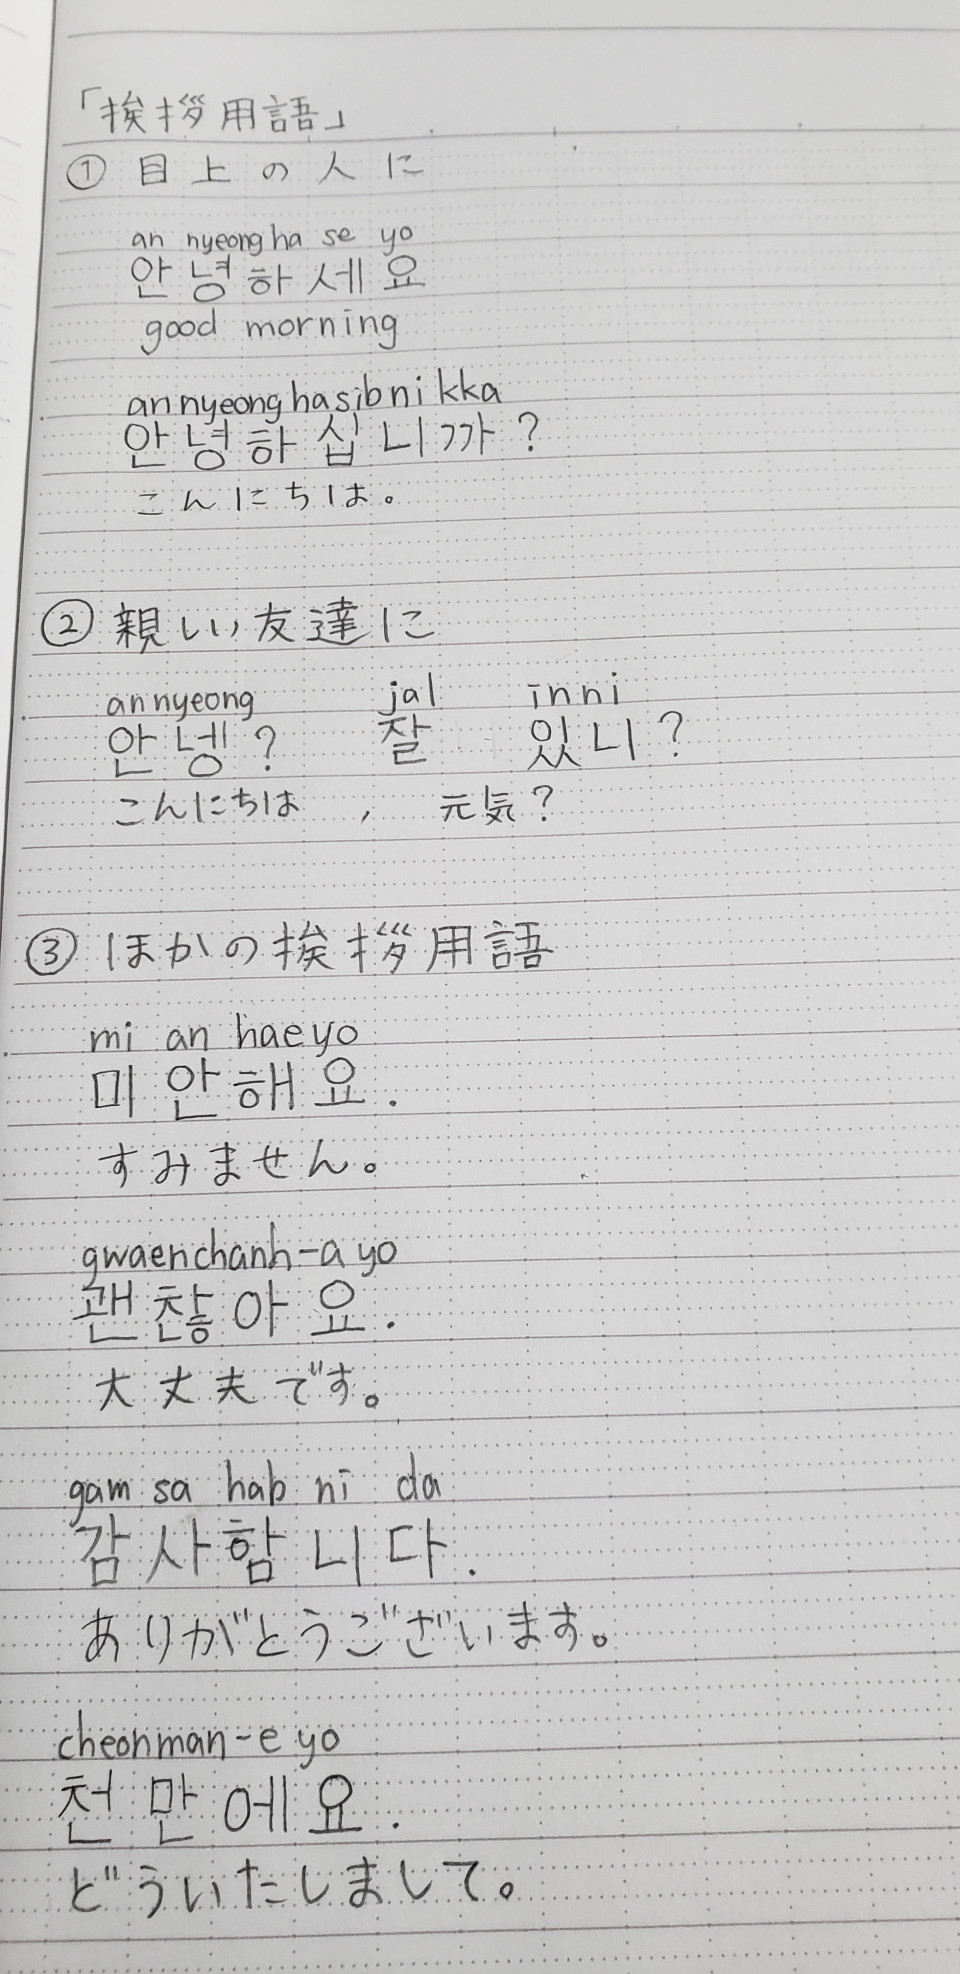 「挨拶用語」
① 目上の人に
an nyeong ha se yo
안녕하세요
good morning
annyeonghasibnikka
안녕하십니까?
こんにちは。
② 親しい友達に
annyeong jal inni
안넹? 잘 있니?
こんにちは , 元気?
③ ほかの挨拶用語
mi an haeyo
미안해요.
すみません。
gwaenchanh-a yo
괜찮아요.
大丈夫です。
gam sa hab ni da
감사함니다.
ありがとうございます。
cheonman-e yo
천만에요.
どういたしまして。